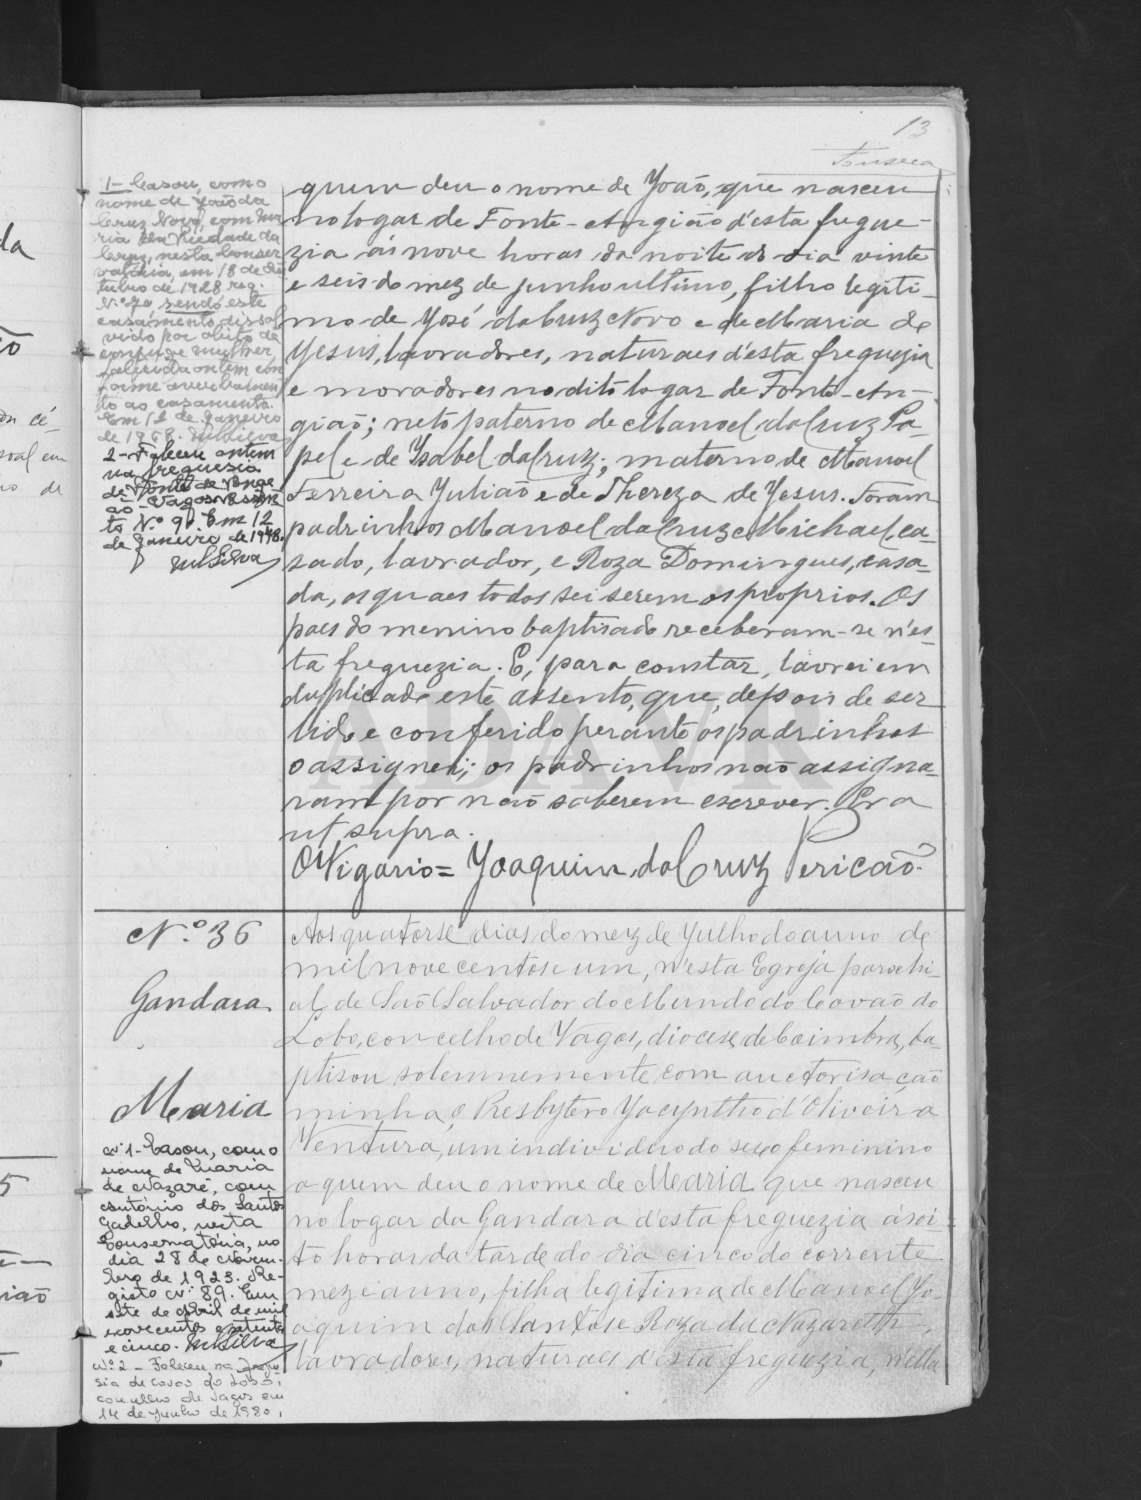 13
Fonseca
1- Casou, com o
nome de João da
Cruz Novo, com Ma
ria da Piedade da
Cruz, nesta Conser
vatória, em 18 de
tubro de 1928 reg.
N.º 70 sendo este
casamento dissol
vido por obito da
conjuge mulher,
falecida ontem con
forme averbamen
to ao casamento.
Em 12 de Janeiro
de 1968. MSilva
2- Faleceu ontem
na freguesia
de Fonte de Ange
ão - Vagos. Assen
to N.º 9. Em 12
de Janeiro de
MSilva
quem deu o nome de João, que nasceu
no logar de Fonte-Angião d'esta fregue-
zia ás nove horas da noite do dia vinte
e seis do mez de junho ultimo, filho legiti-
mo de José da Cruz Novo e de Maria de
Jesus, lavradores, naturaes d'esta freguezia
e moradores no dito logar de Fonte-An-
gião; neto paterno de Manoel da Cruz Pa-
pel e de Isabel da Cruz; materno de Manoel
Ferreira Julião e de Thereza de Jesus. Foram
padrinhos Manoel da Cruz Michael, ca-
sado, lavrador, e Roza Domingues, casa-
da, os quaes todos sei serem os proprios. Os
paes do menino baptisado receberam-se n'es-
ta freguezia. E, para constar, lavrei em
duplicado este assento, que, depois de ser
lido e conferido perante os padrinhos
o assignei; os padrinhos não assigna-
ram por não saberem escrever. Era
ut supra.
O Vigario = Joaquim da Cruz Pericão.
ADAVR
N.º 36
Gandara
Maria
Nº 1- Casou, com o
nome de Maria
de Nazaré, com
António dos Santos
Gadelho, nesta
Conservatória, no
dia 28 de Novem-
bro de 1923. Re-
gisto Nº 89. Em
sete de Abril de mil
novecentos e setenta
e cinco. MSilva
Nº 2 - Faleceu na fregue-
sia de Covão do Lobo,
concelho de Vagos em
14 de Junho de 1980,
Aos quatorse dias do mez de Julho do anno de
mil nove centos e um, n'esta Egreja parochi-
al de São Salvador do Mundo do Covão do
Lobo, concelho de Vagos, diocese de Coimbra, ba-
ptisou solemnemente, com auctorisação
minha, o Presbytero Jacyntho d'Oliveira
Ventura, um individuo do sexo feminino
a quem deu o nome de Maria que nasceu
no logar da Gandara d'esta freguezia ás oi-
to horas da tarde do dia cinco do corrente
mez e anno, filha legitima de Manoel Jo-
aquim dos Santos e Roza da Nazareth,
lavradores, naturaes d'esta freguezia, n'ella